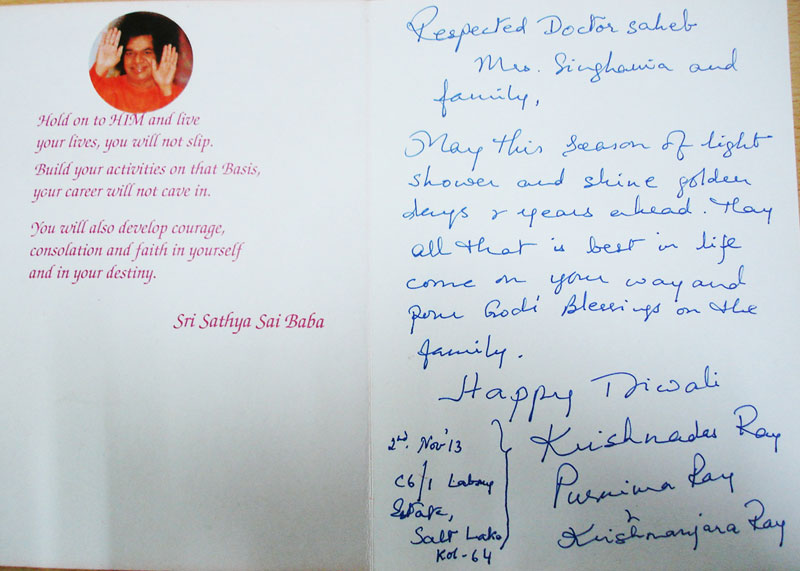 Hold on to HIM and live
your lives, you will not slip.
Build your activities on that Basis,
your career will not cave in.
You will also develop courage,
consolation and faith in yourself
and in your destiny.
Sri Sathya Sai Baba
Respected Doctor saheb
Mrs. Singhania and
family,
May this season of light
shower and shine golden
days & years ahead. May
all that is best in life
come on your way and
pour God's Blessings on the
family.
Happy Diwali
Krishnadas Ray
Purnima Ray
&
Krishnanjara Ray
2nd. Nov'13
C6/1 Labony
Estate,
Salt Lake
Kol-64